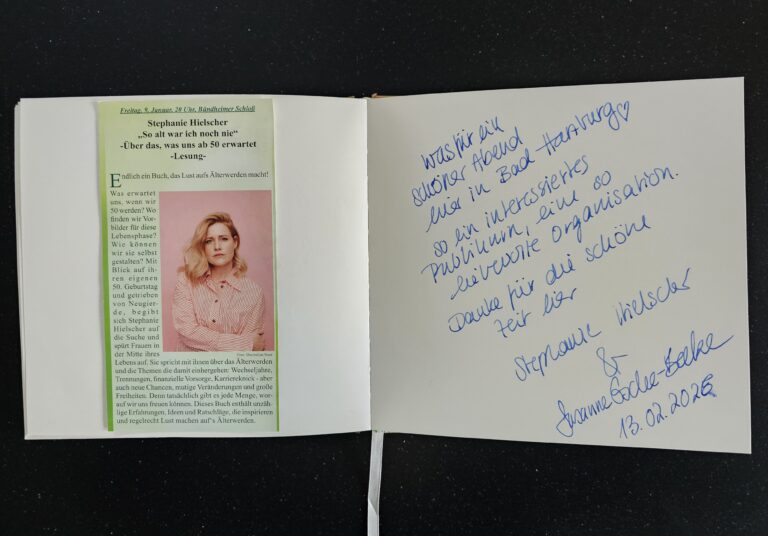 Freitag, 9. Januar, 20 Uhr, Bündheimer Schloß
Stephanie Hielscher
„So alt war ich noch nie“
-Über das, was uns ab 50 erwartet
-Lesung-
Endlich ein Buch, das Lust auf's Älterwerden macht!
Was erwartet
uns, wenn wir
50 werden? Wo
finden wir Vor-
bilder für diese
Lebensphase?
Wie können
wir sie selbst
gestalten? Mit
Blick auf ih-
ren eigenen
50. Geburtstag
und getrieben
von Neugier-
de, begibt
sich Stephanie
Hielscher auf
die Suche und
spürt Frauen in
der Mitte ihres
Lebens auf. Sie spricht mit ihnen über das Älterwerden
und die Themen die damit einhergehen: Wechseljahre,
Trennungen, finanzielle Vorsorge, Karriereknick - aber
auch neue Chancen, mutige Veränderungen und große
Freiheiten. Denn tatsächlich gibt es jede Menge, wor-
auf wir uns freuen können. Dieses Buch enthält unzäh-
lige Erfahrungen, Ideen und Ratschläge, die inspirieren
und regelrecht Lust machen auf's Älterwerden.
Was für ein
schöner Abend
hier in Bad Harzburg♡
So ein interessiertes
Publikum, eine so
liebevolle Organisation.
Danke für die schöne
Zeit hier
Stephanie Hielscher
&
Susanne
13.02.2026